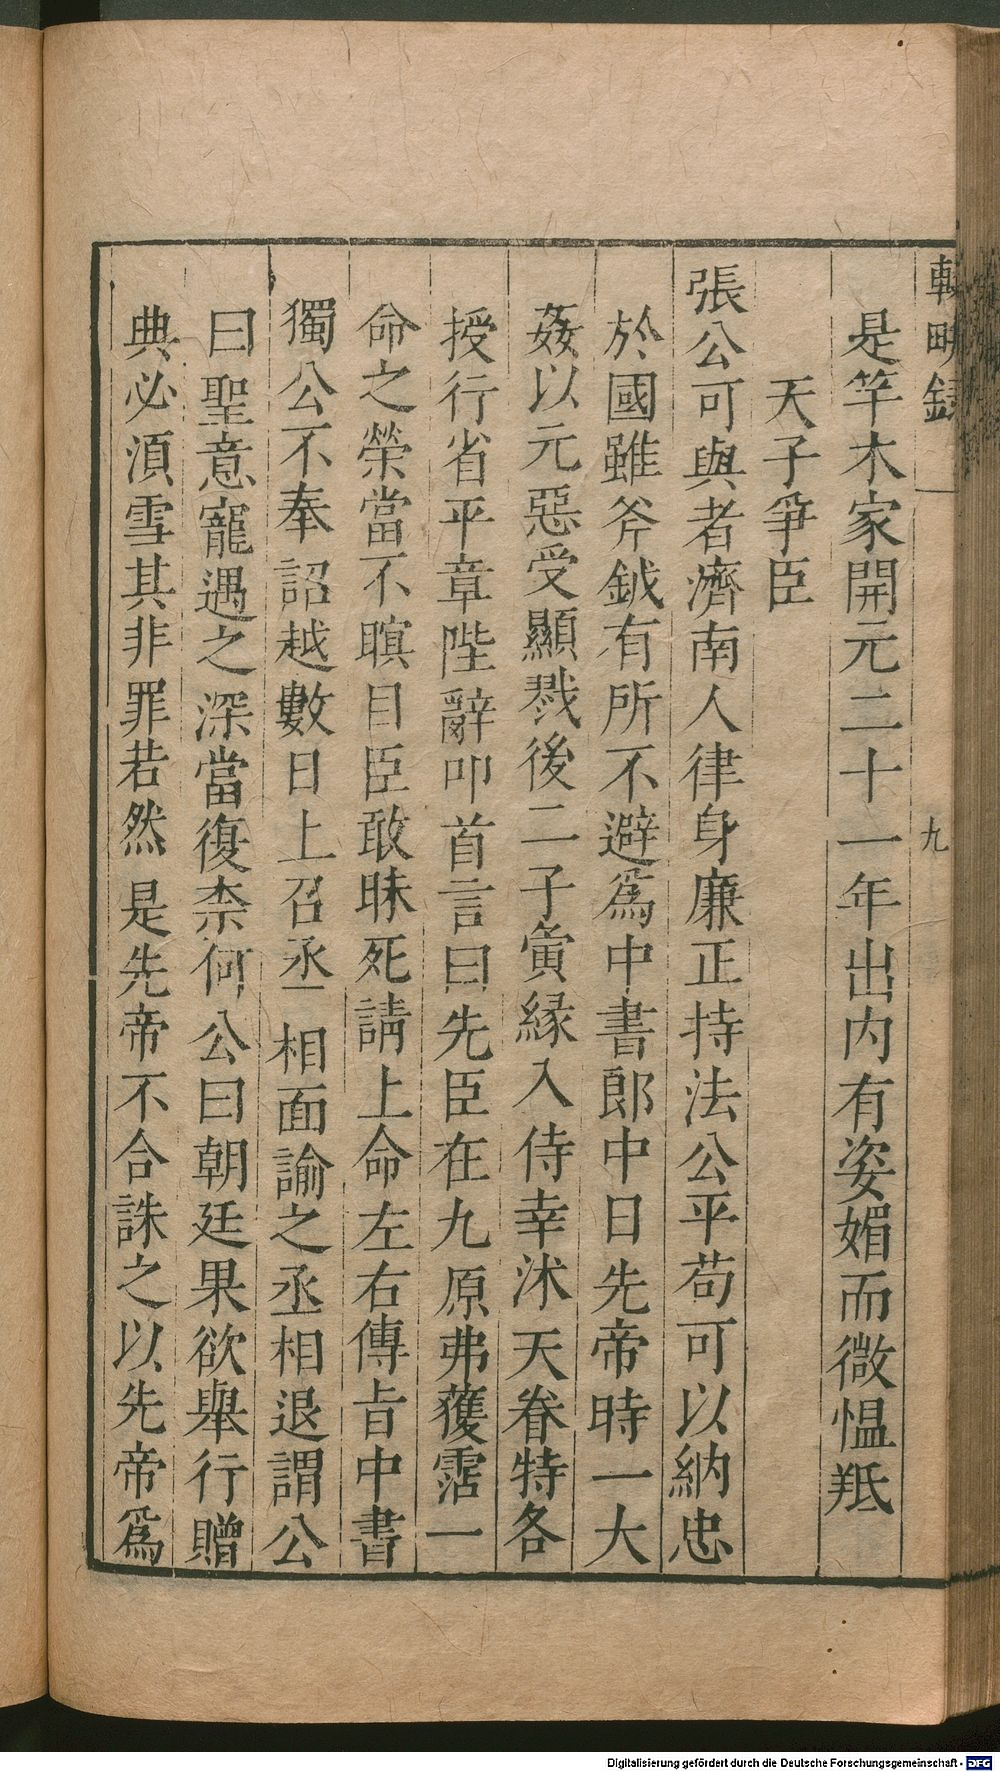 輟畊錄 九
是竿木家開元二十一年出内有姿媚而微慍羝
天子爭臣
張公可與者濟南人律身廉正持法公平苟可以納忠
於國雖斧鉞有所不避爲中書郎中日先帝時一大
姦以元惡受顯戮後二子夤緣入侍幸沐天眷特各
授行省平章陛辭叩首言曰先臣在九原弗獲霑一
命之榮當不瞑目臣敢昧死請上命左右傳旨中書
獨公不奉詔越數日上召丞相面諭之丞相退謂公
曰聖意寵遇之深當復柰何公曰朝廷果欲舉行贈
典必湏雪其非罪若然是先帝不合誅之以先帝爲
Digitalisierung gefördert durch die Deutsche Forschungsgemeinschaft - DFG